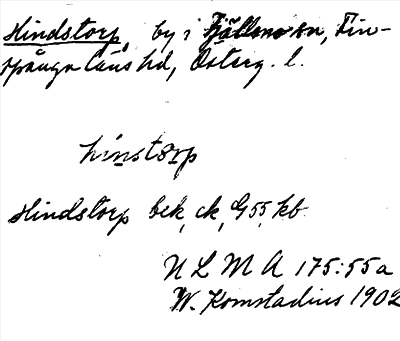 Hindstorp, by i Hällestad sn, Fin-
spånga läns hd, Österg. l.
hinstorp
Hindstorp bek, ck, G55, kb.
ULMA 175:55a
W. Komstadius 1902